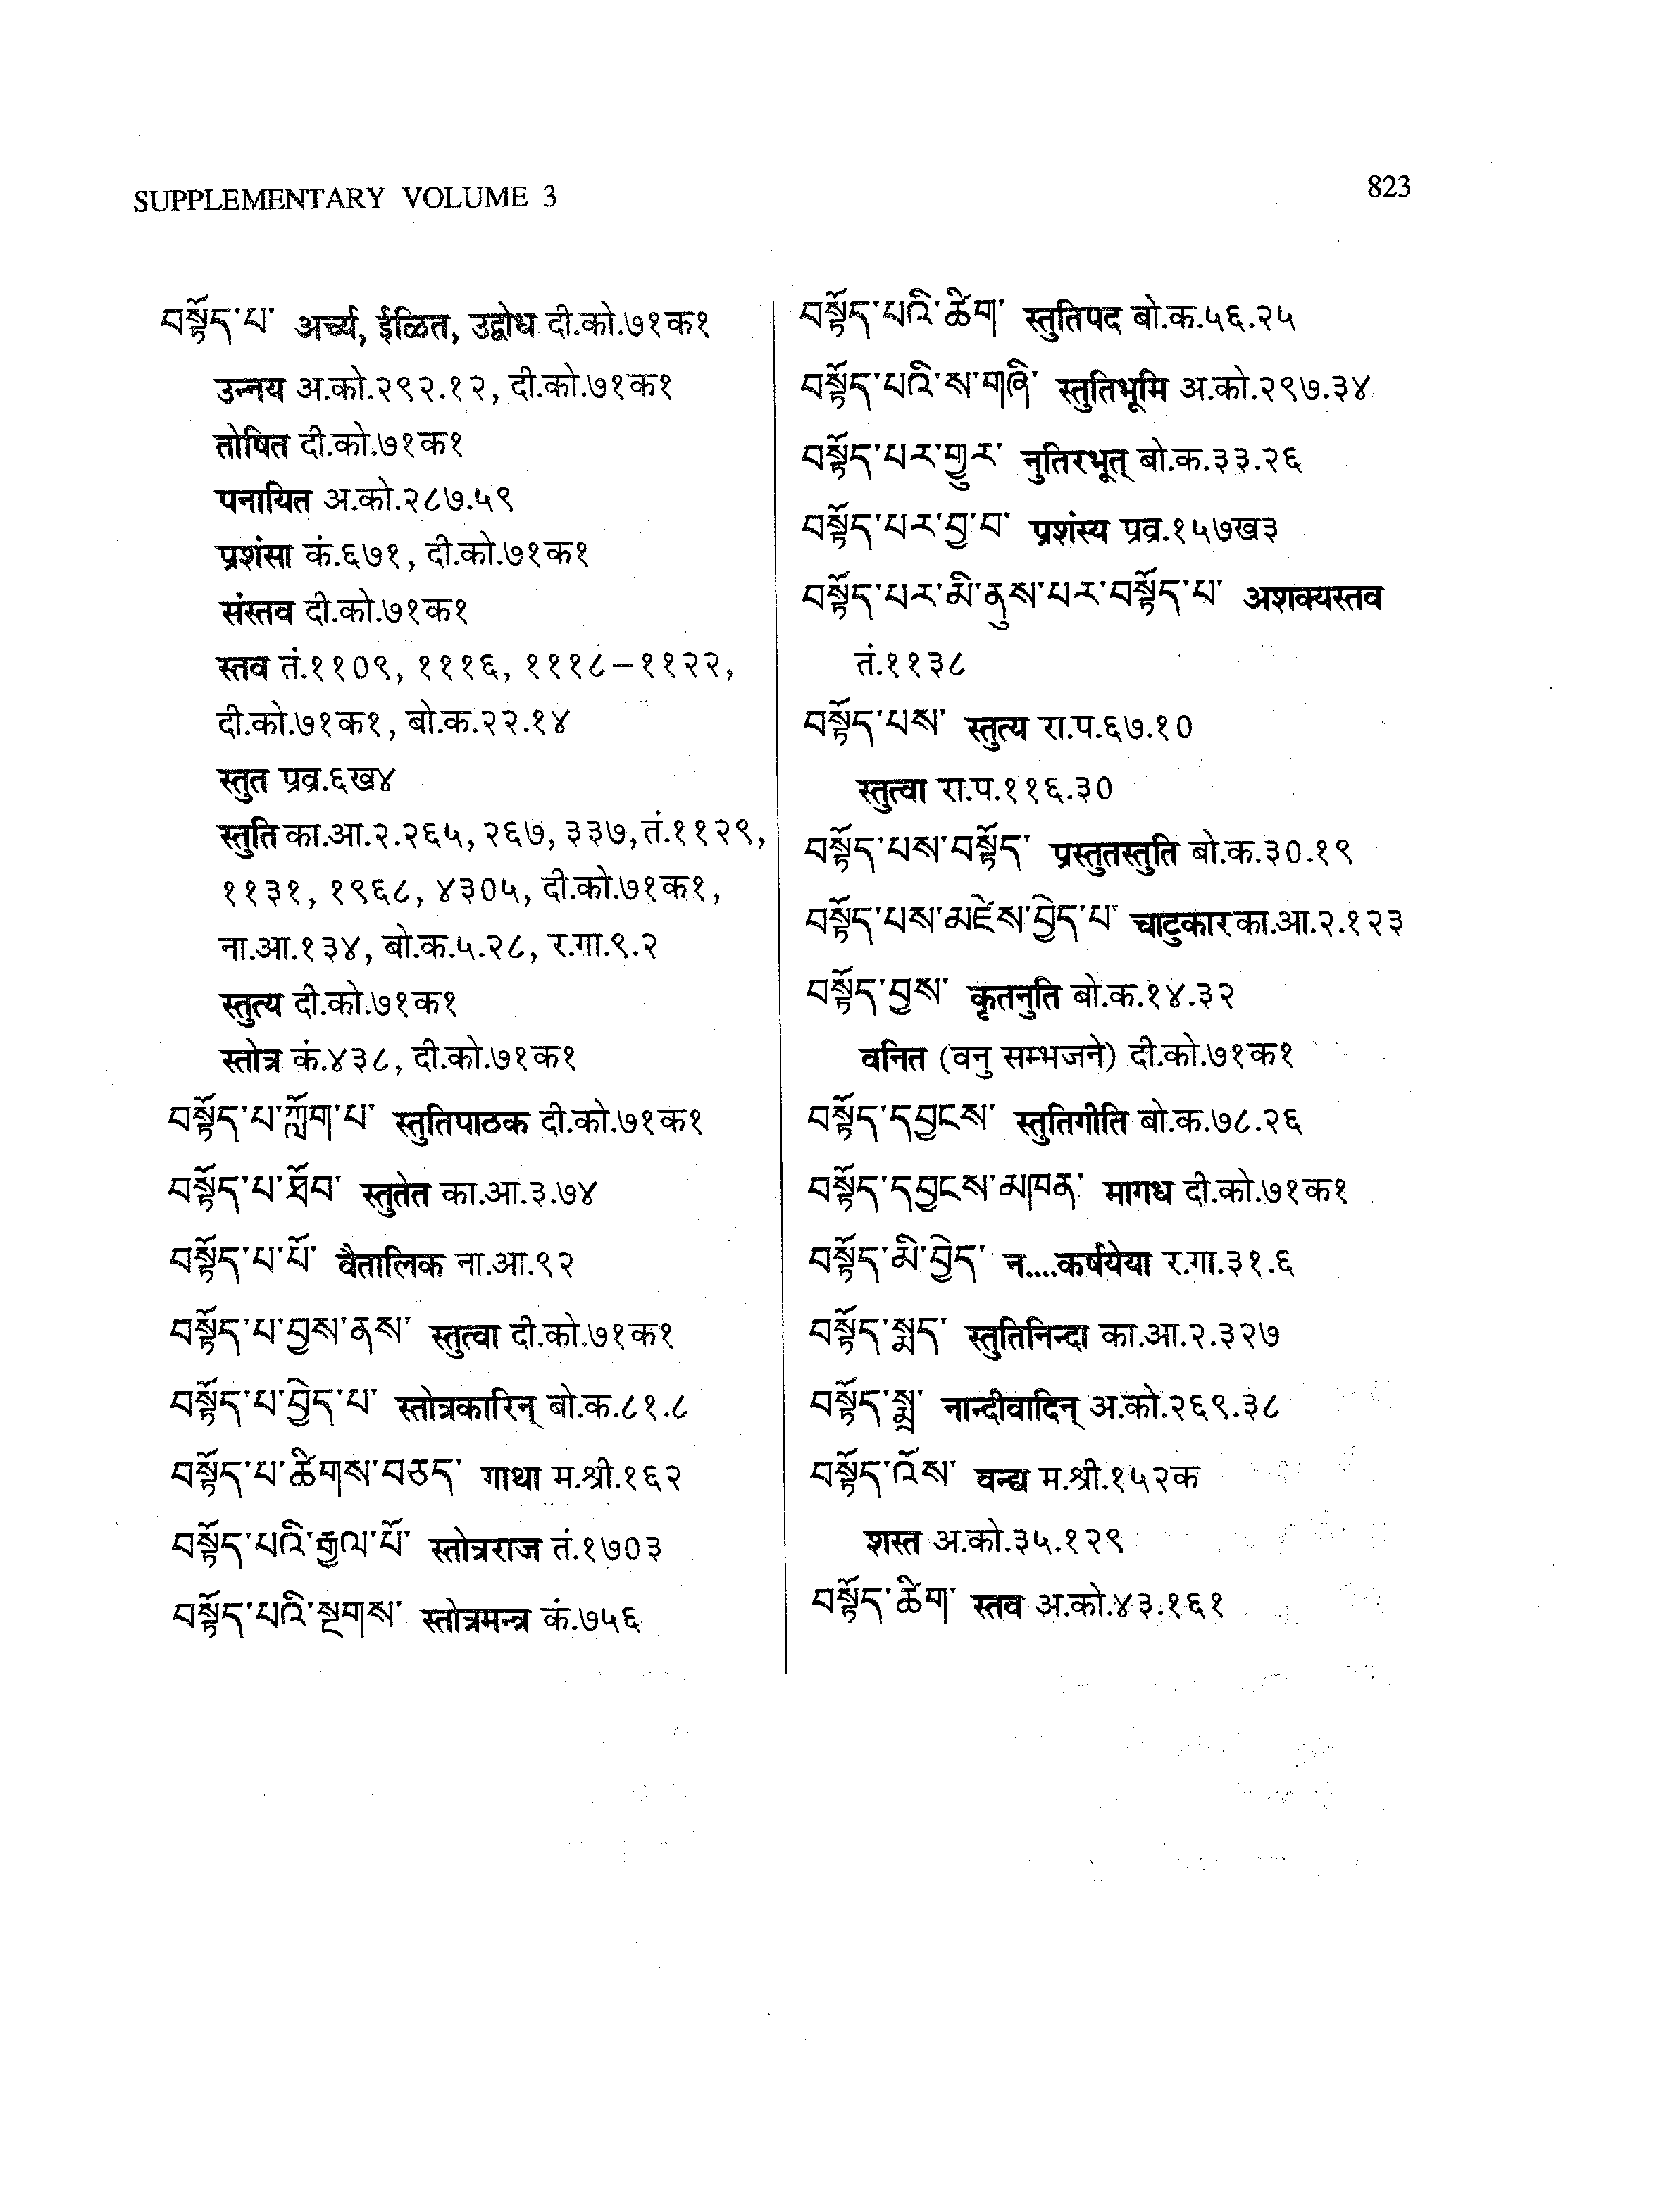 SUPPLEMENTARY VOLUME 3
823
བསྟོད་པ་ अर्च्य, ईळित, उद्बोध दी.को.७१क१
उन्नय अ.को.२९२.१२, दी.को.७१क१
तोषित दी.को.७१क१
पनायित अ.को.२८७.५९
प्रशंसा कं.६७१, दी.को.७१क१
संस्तव दी.को.७१क१
स्तव तं.११०९, १११६, १११८–११२२,
दी.को.७१क१, बो.क.२२.१४
स्तुत प्रव्र.६ख४
स्तुति का.आ.२.२६५, २६७, ३३७, तं.११२९,
११३१, १९६८, ४३०५, दी.को.७१क१,
ना.आ.१३४, बो.क.५.२८, र.गा.९.२
स्तुत्य दी.को.७१क१
स्तोत्र कं.४३८, दी.को.७१क१
བསྟོད་པ་ཀློག་པ་ स्तुतिपाठक दी.को.७१क१
བསྟོད་པ་ཐོབ་ स्तुतेत का.आ.३.७४
བསྟོད་པ་པོ་ वैतालिक ना.आ.९२
བསྟོད་པ་བྱས་ནས་ स्तुत्वा दी.को.७१क१
བསྟོད་པ་བྱེད་པ་ स्तोत्रकारिन् बो.क.८१.८
བསྟོད་པ་ཚིགས་བཅད་ गाथा म.श्री.१६२
བསྟོད་པའི་རྒྱལ་པོ་ स्तोत्रराज तं.१७०३
བསྟོད་པའི་སྔགས་ स्तोत्रमन्त्र कं.७५६
བསྟོད་པའི་ཚིག་ स्तुतिपद बो.क.५६.२५
བསྟོད་པའི་ས་གཞི་ स्तुतिभूमि अ.को.२९७.३४
བསྟོད་པར་གྱུར་ नुतिरभूत् बो.क.३३.२६
བསྟོད་པར་བྱ་བ་ प्रशंस्य प्रव्र.१५७ख३
བསྟོད་པར་མི་ནུས་པར་བསྟོད་པ་ अशक्यस्तव
तं.११३८
བསྟོད་པས་ स्तुत्य रा.प.६७.१०
स्तुत्वा रा.प.११६.३०
བསྟོད་པས་བསྟོད་ प्रस्तुतस्तुति बो.क.३०.१९
བསྟོད་པས་མཛེས་བྱེད་པ་ चाटुकार का.आ.२.१२३
བསྟོད་བྱས་ कृतनुति बो.क.१४.३२
वनित (वनु सम्भजने) दी.को.७१क१
བསྟོད་དབྱངས་ स्तुतिगीति बो.क.७८.२६
བསྟོད་དབྱངས་མཁན་ मागध दी.को.७१क१
བསྟོད་མི་བྱེད་ न....कर्षयेया र.गा.३१.६
བསྟོད་སྨད་ स्तुतिनिन्दा का.आ.२.३२७
བསྟོད་སྨྲ་ नान्दीवादिन् अ.को.२६९.३८
བསྟོད་འོས་ वन्द्य म.श्री.१५२क
शस्त अ.को.३५.१२९
བསྟོད་ཚིག་ स्तव अ.को.४३.१६१